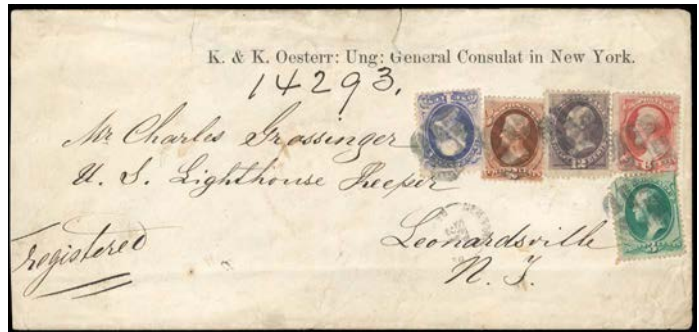 K. & K. Oesterr: Ung: General Consulat in New York.
14293.
Mr Charles Grossinger
U. S. Lighthouse Keeper
Leonardsville
N. J.
registered
12 CENTS